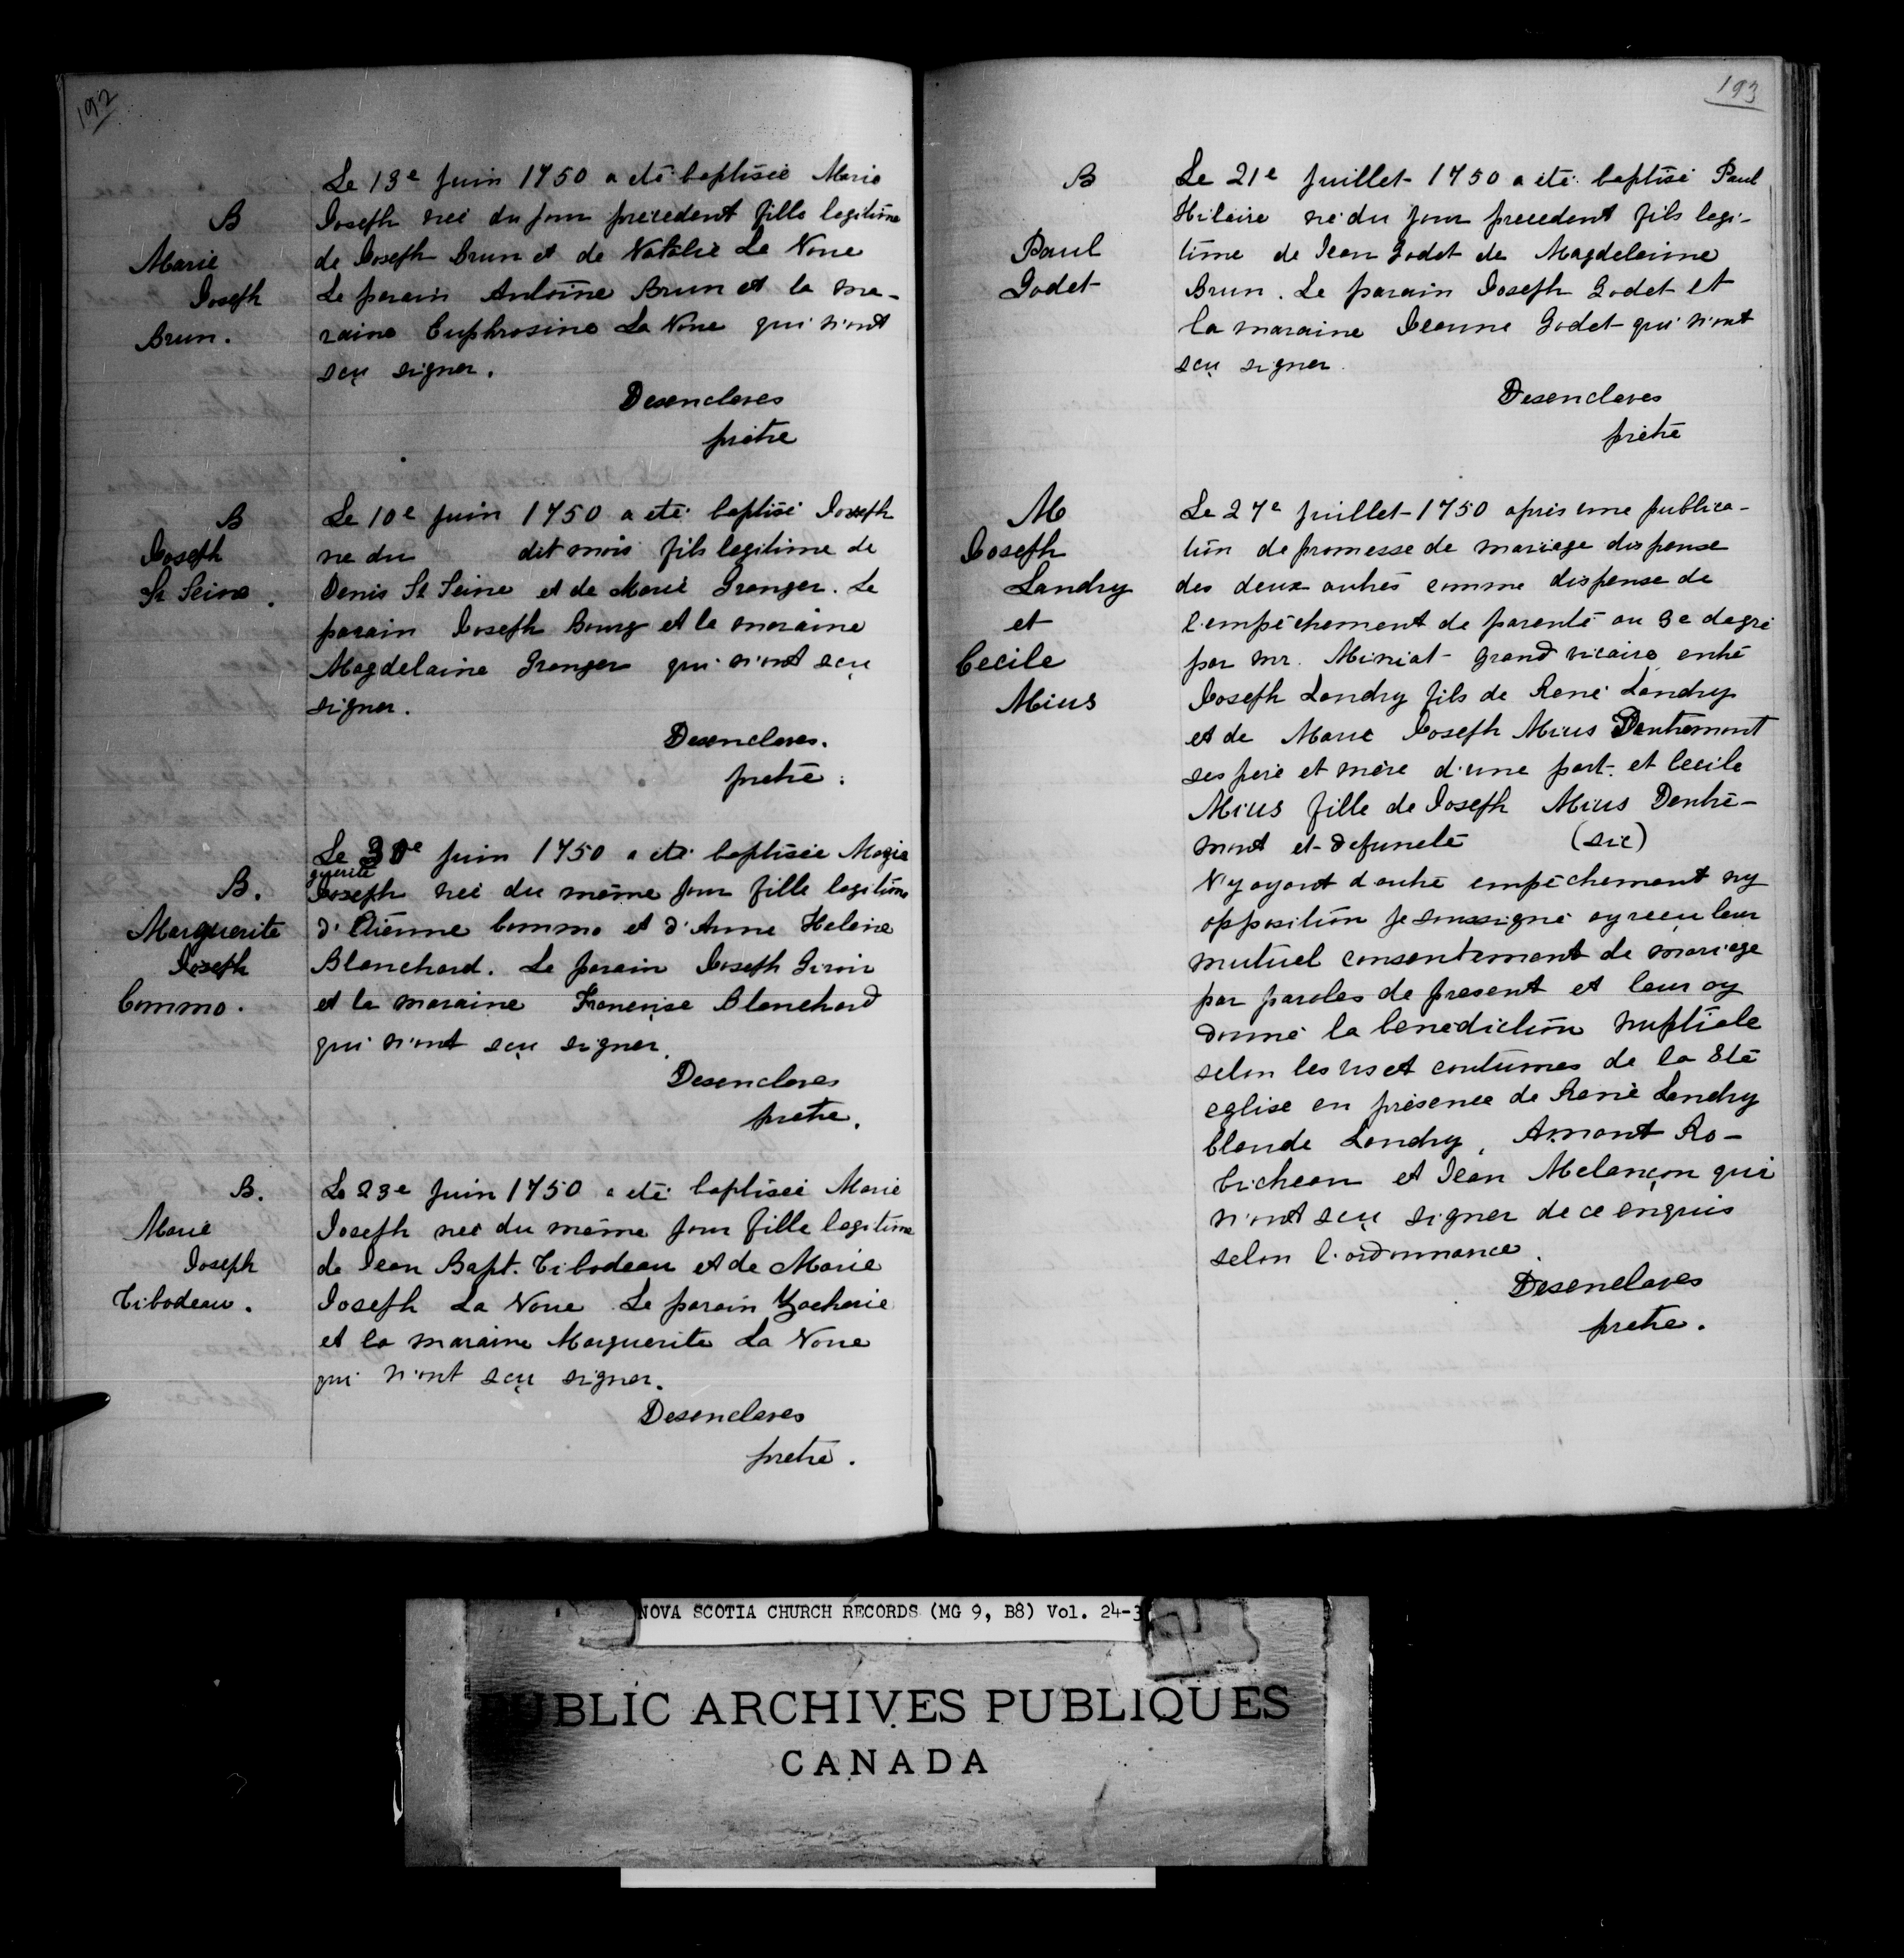 192
Le 13e Juin 1750 a eté baptisée Marie
B
Joseph neé du jour précedent fille legitime
Marie
de Joseph Brun et de Natalie La None
Joseph
Le parain Antoine Brun et la ma-
Brun.
raine Euphrosine La None qui n'ont
sçu signer.
Desenclaves
prêtre
B
Le 10e Juin 1750 a eté baptisé Joseph
Joseph
ne du dit mois fils legitime de
St Seine.
Denis St Seine et de Marie Granger. Le
parain Joseph Bourg et la maraine
Magdelaine Granger qui n'ont sçu
signer.
Desenclaves.
pretre.
Le 30e Juin 1750 a eté baptisée Marie
guerite
B.
Joseph neé du même jour fille legitime
Marguerite
d'Etienne Commo et d'Anne Helene
Joseph
Blanchard. Le parain Joseph Giroir
Commo.
et la maraine Françoise Blanchard
qui n'ont sçu signer.
Desenclaves
pretre.
B.
Le 23e Juin 1750 a eté baptisée Marie
Marie
Joseph neé du même jour fille legitime
Joseph
de Jean Bapt. Tibodeau et de Marie
Tibodeau.
Joseph La None Le parain Zacharie
et la maraine Marguerite La None
qui n'ont sçu signer.
Desenclaves
pretre.
193
B
Le 21e Juillet 1750 a eté baptisé Paul
Hilaire né du jour precedent fils legi-
Paul
time de Jean Godet de Magdeleinne
Godet
Brun. Le parain Joseph Godet et
la maraine Jeanne Godet qui n'ont
sçu signer.
Desenclaves
prêtre
M
Le 27e Juillet 1750 apris une publica-
Joseph
tion de promesse de mariage dispense
Landry
des deux autres comme dispense de
et
l'empêchement de parenté au 3e degré
Cecile
par mr. Miniat grand vicaire entre
Mius
Joseph Landry fils de René Landry
et de Marie Joseph Mius Dentremont
ses pere et mere d'une part. et Cecile
Mius fille de Joseph Mius Dentre-
mont et defuncte (sic)
N'y ayant d'autre empêchement ny
opposition je soussigné ay reçu leur
mutuel consentement de mariage
par paroles de present et leur ay
donné la benediction nuptiale
selon les us et coutumes de la Ste
eglise en présence de René Landry
Claude Landry, Amant Ro-
bicheau et Jean Melançon qui
n'ont sçu signer de ce enquis
selon l'ordonnance.
Desenclaves
pretre.
NOVA SCOTIA CHURCH RECORDS (MG 9, B8) Vol. 24-3
PUBLIC ARCHIVES PUBLIQUES
CANADA